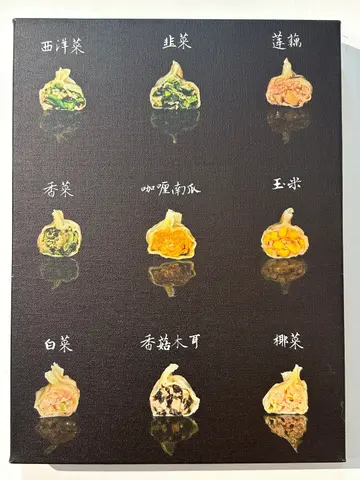 西洋菜
韭菜
莲藕
香菜
咖喱南瓜
玉米
白菜
香菇木耳
椰菜